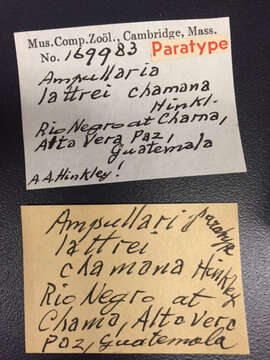 Mus. Comp. Zoöl., Cambridge, Mass.
No. 169983 Paratype
Ampullaria
lattrei chamana
Hinkl.
Rio Negro at Chama,
Alta Vera Paz,
Guatemala
A.A. Hinkley!
Ampullari paratype
lattrei
chamana Hinkley
Rio Negro at
Chama, Alta Vera
Paz, Guatemala